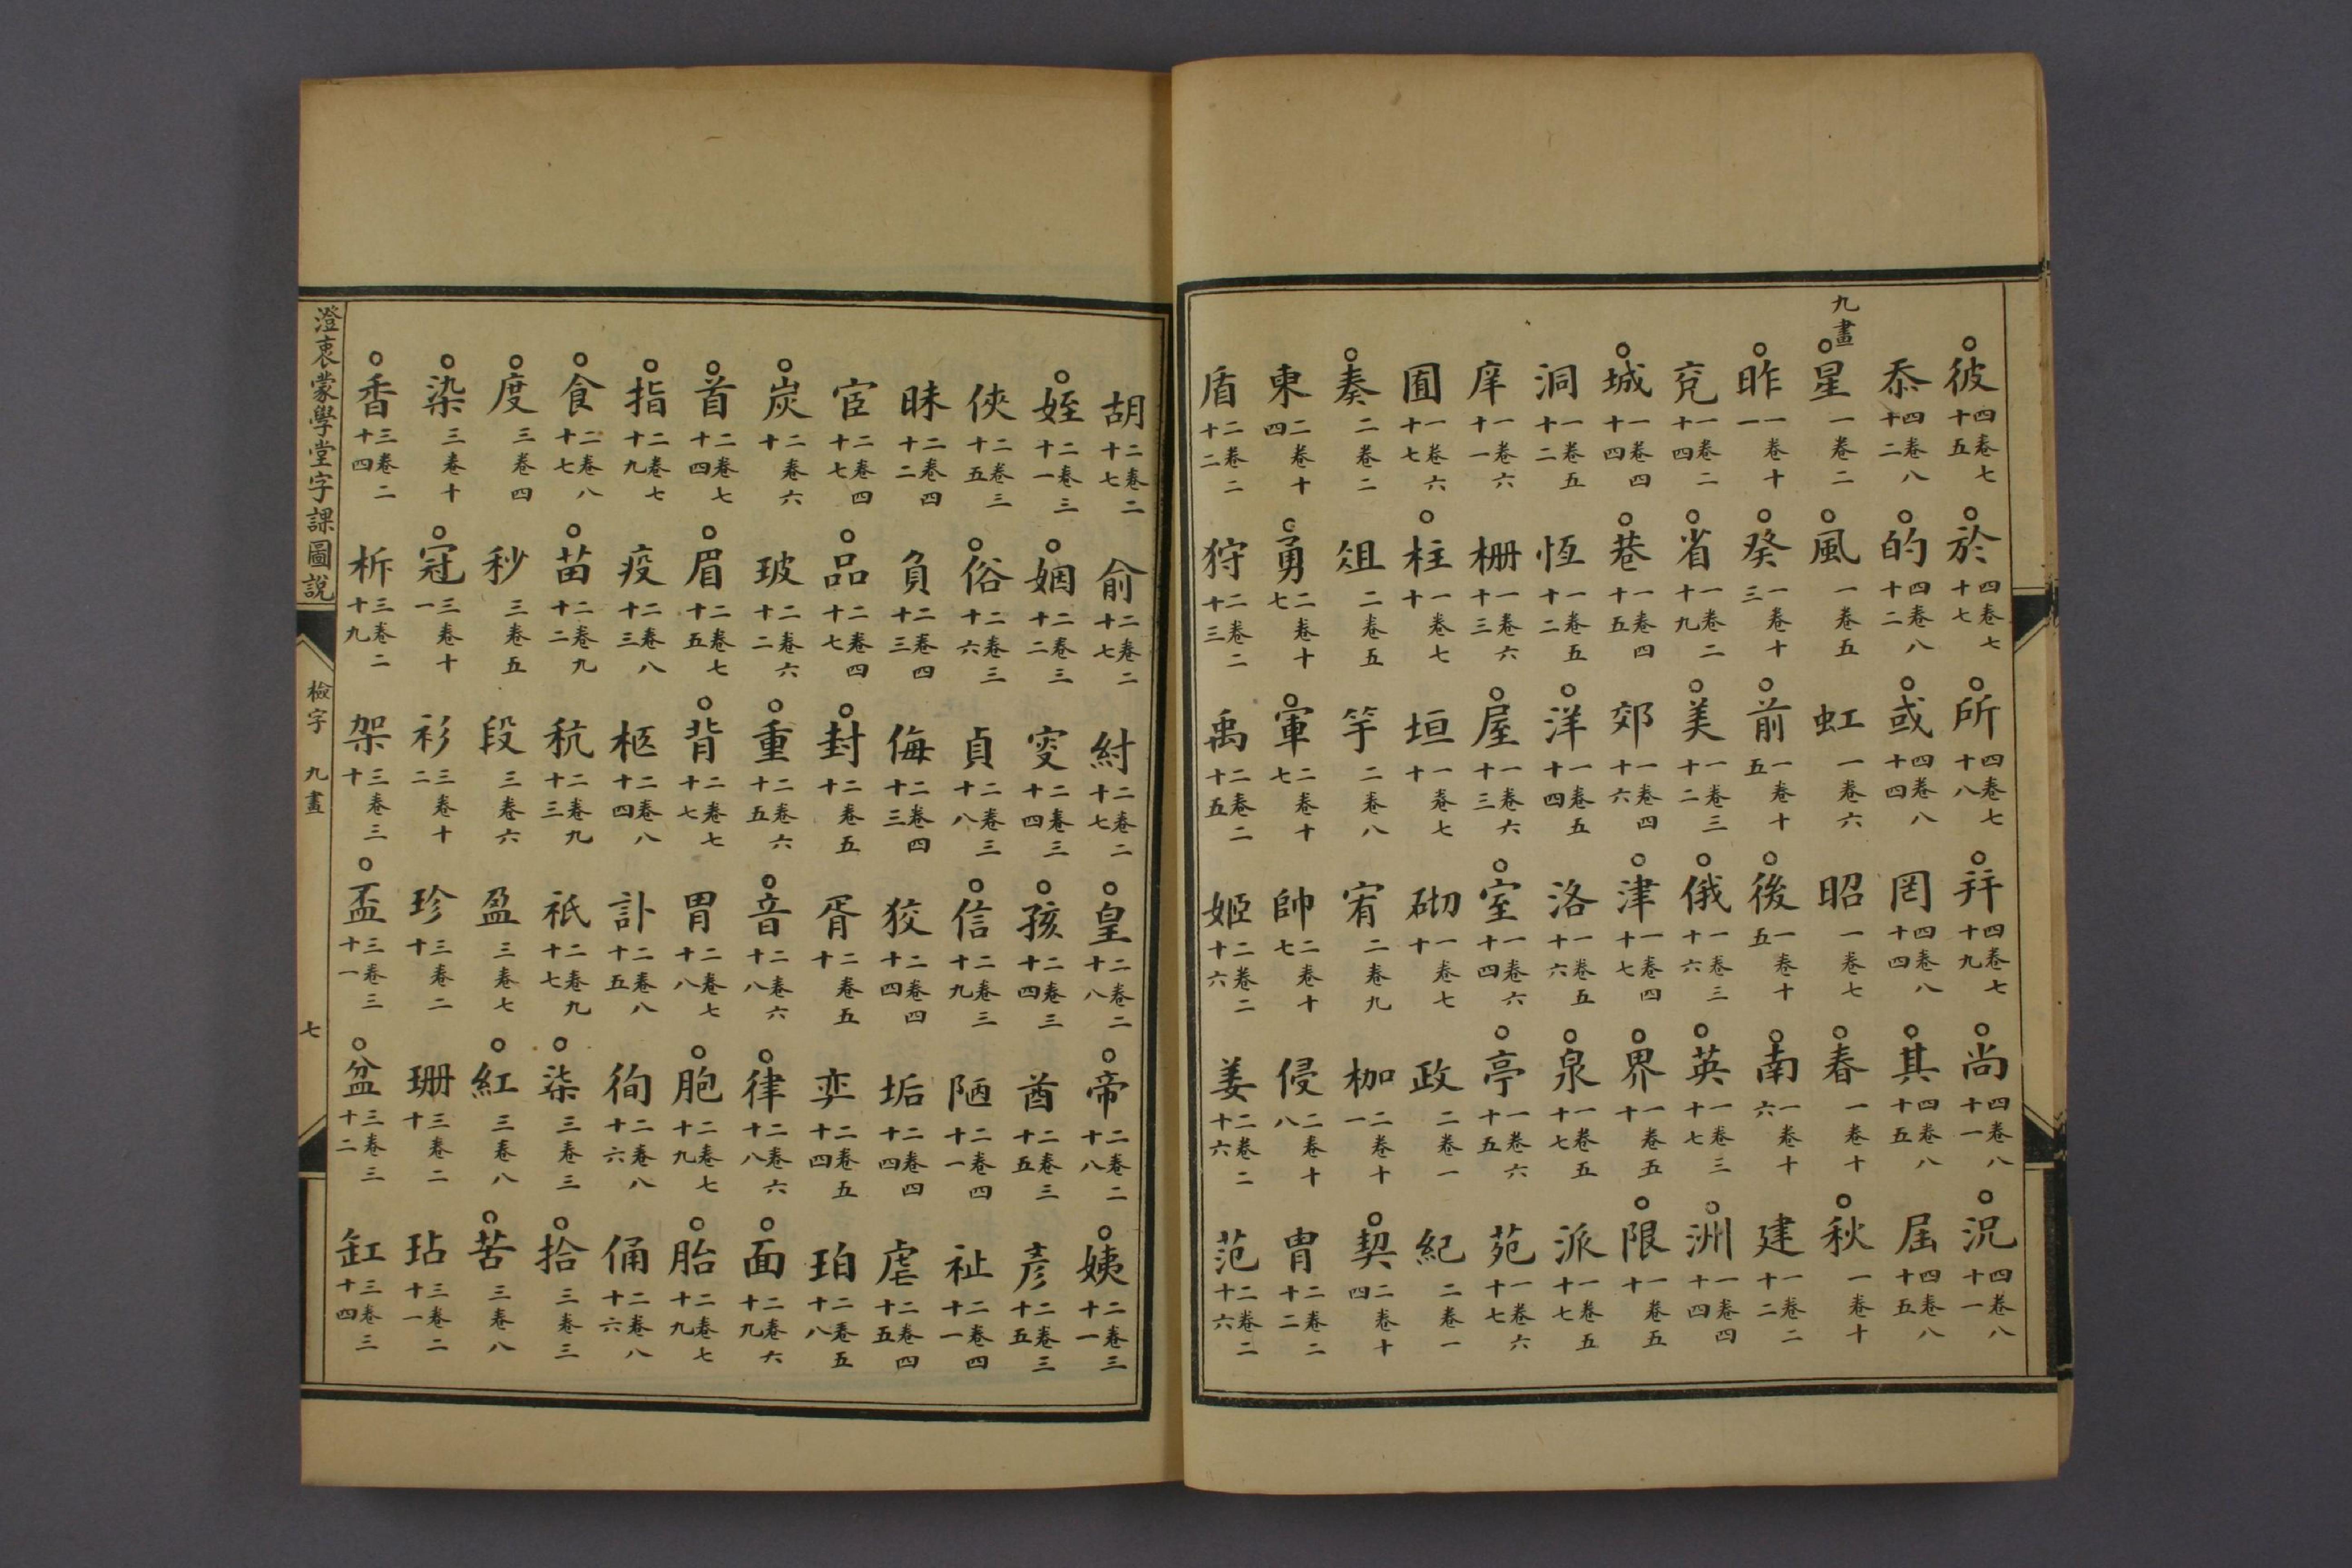 ○彼四卷七十五 ○於四卷七十七 ○所四卷七十八 ○幷四卷七十九 ○尚四卷八十一 ○況四卷八十一
忝四卷八十二 ○的四卷八十二 ○或四卷八十四 罔四卷八十四 ○其四卷八十五 屆四卷八十五
九畫
○星一卷二 ○風一卷五 虹一卷六 昭一卷七 ○春一卷十 ○秋一卷十
○昨一卷十一 ○癸一卷十三 ○前一卷十五 ○後一卷十五 ○南一卷十六 建一卷二十二
兗一卷二十四 ○省一卷二十九 ○美一卷三十二 ○俄一卷三十六 ○英一卷三十七 ○洲一卷四十四
○城一卷四十四 ○巷一卷四十五 郊一卷四十六 ○津一卷四十七 ○界一卷五十 ○限一卷五十
洞一卷五十二 恆一卷五十二 ○洋一卷五十四 洛一卷五十六 ○泉一卷五十七 派一卷五十七
庠一卷六十一 柵一卷六十三 ○屋一卷六十三 ○室一卷六十四 ○亭一卷六十五 苑一卷六十七
囿一卷六十七 ○柱一卷七十 垣一卷七十 砌一卷七十 政二卷一 紀二卷一
○奏二卷二 俎二卷五 竽二卷八 宥二卷九 枷二卷十一 ○契二卷十四
柬二卷十四 ○勇二卷十七 ○軍二卷十七 帥二卷十七 侵二卷十八 胄二卷二十二
盾二卷二十二 狩二卷二十三 禹二卷二十五 姬二卷二十六 姜二卷二十六 范二卷二十六
胡二卷二十七 俞二卷二十七 紂二卷二十七 ○皇二卷二十八 ○帝二卷二十八 ○姨二卷三十一
○姪二卷三十一 ○姻二卷三十二 叟二卷三十四 ○孩二卷三十四 酋二卷三十五 彥二卷三十五
俠二卷三十五 ○俗二卷三十六 貞二卷三十八 ○信二卷三十九 陋二卷四十一 祉二卷四十一
昧二卷四十二 負二卷四十三 侮二卷四十三 狡二卷四十四 垢二卷四十四 虐二卷四十五
宦二卷四十七 ○品二卷四十七 ○封二卷五十 胥二卷五十 弈二卷五十四 珀二卷五十八
○炭二卷六十 玻二卷六十二 ○重二卷六十五 ○音二卷六十八 ○律二卷六十八 ○面二卷六十九
○首二卷七十四 ○眉二卷七十五 ○背二卷七十七 胃二卷七十八 ○胞二卷七十九 ○胎二卷七十九
○指二卷七十九 疫二卷八十三 柩二卷八十四 訃二卷八十五 徇二卷八十六 俑二卷八十六
○食二卷八十七 ○苗二卷九十二 秔二卷九十三 祇二卷九十七 ○柒三卷三 ○拾三卷三
○度三卷四 秒三卷五 段三卷六 盈三卷七 ○紅三卷八 ○苦三卷八
○染三卷十 ○冠三卷十一 衫三卷十二 珍三卷二十 珊三卷二十 玷三卷二十一
○香三卷二十四 柝三卷二十九 架三卷三十 ○盃三卷三十一 ○盆三卷三十二 缸三卷三十四
澄衷蒙學堂字課圖說 檢字 九畫 七